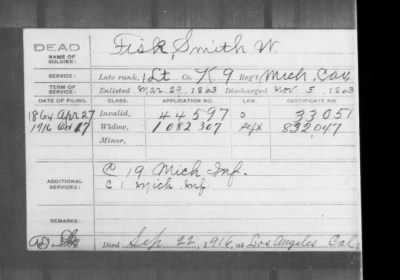 DEAD
NAME OF SOLDIER:
Fisk, Smith W.
SERVICE:
Late rank, 1 Lt Co. K 9 Reg't Mich. Cav
TERM OF SERVICE:
Enlisted Mar 29, 1863 Discharged Nov 5, 1863
DATE OF FILING. CLASS. APPLICATION NO. LAW. CERTIFICATE NO.
1864 Apr 27 Invalid, 44597 33051
1916 Oct 27 Widow, 1082307 832047
Minor,
ADDITIONAL SERVICES:
C 19 Mich Inf.
C 1 Mich Inf
REMARKS:
Died Sep 22, 1916, at Los Angeles Cal